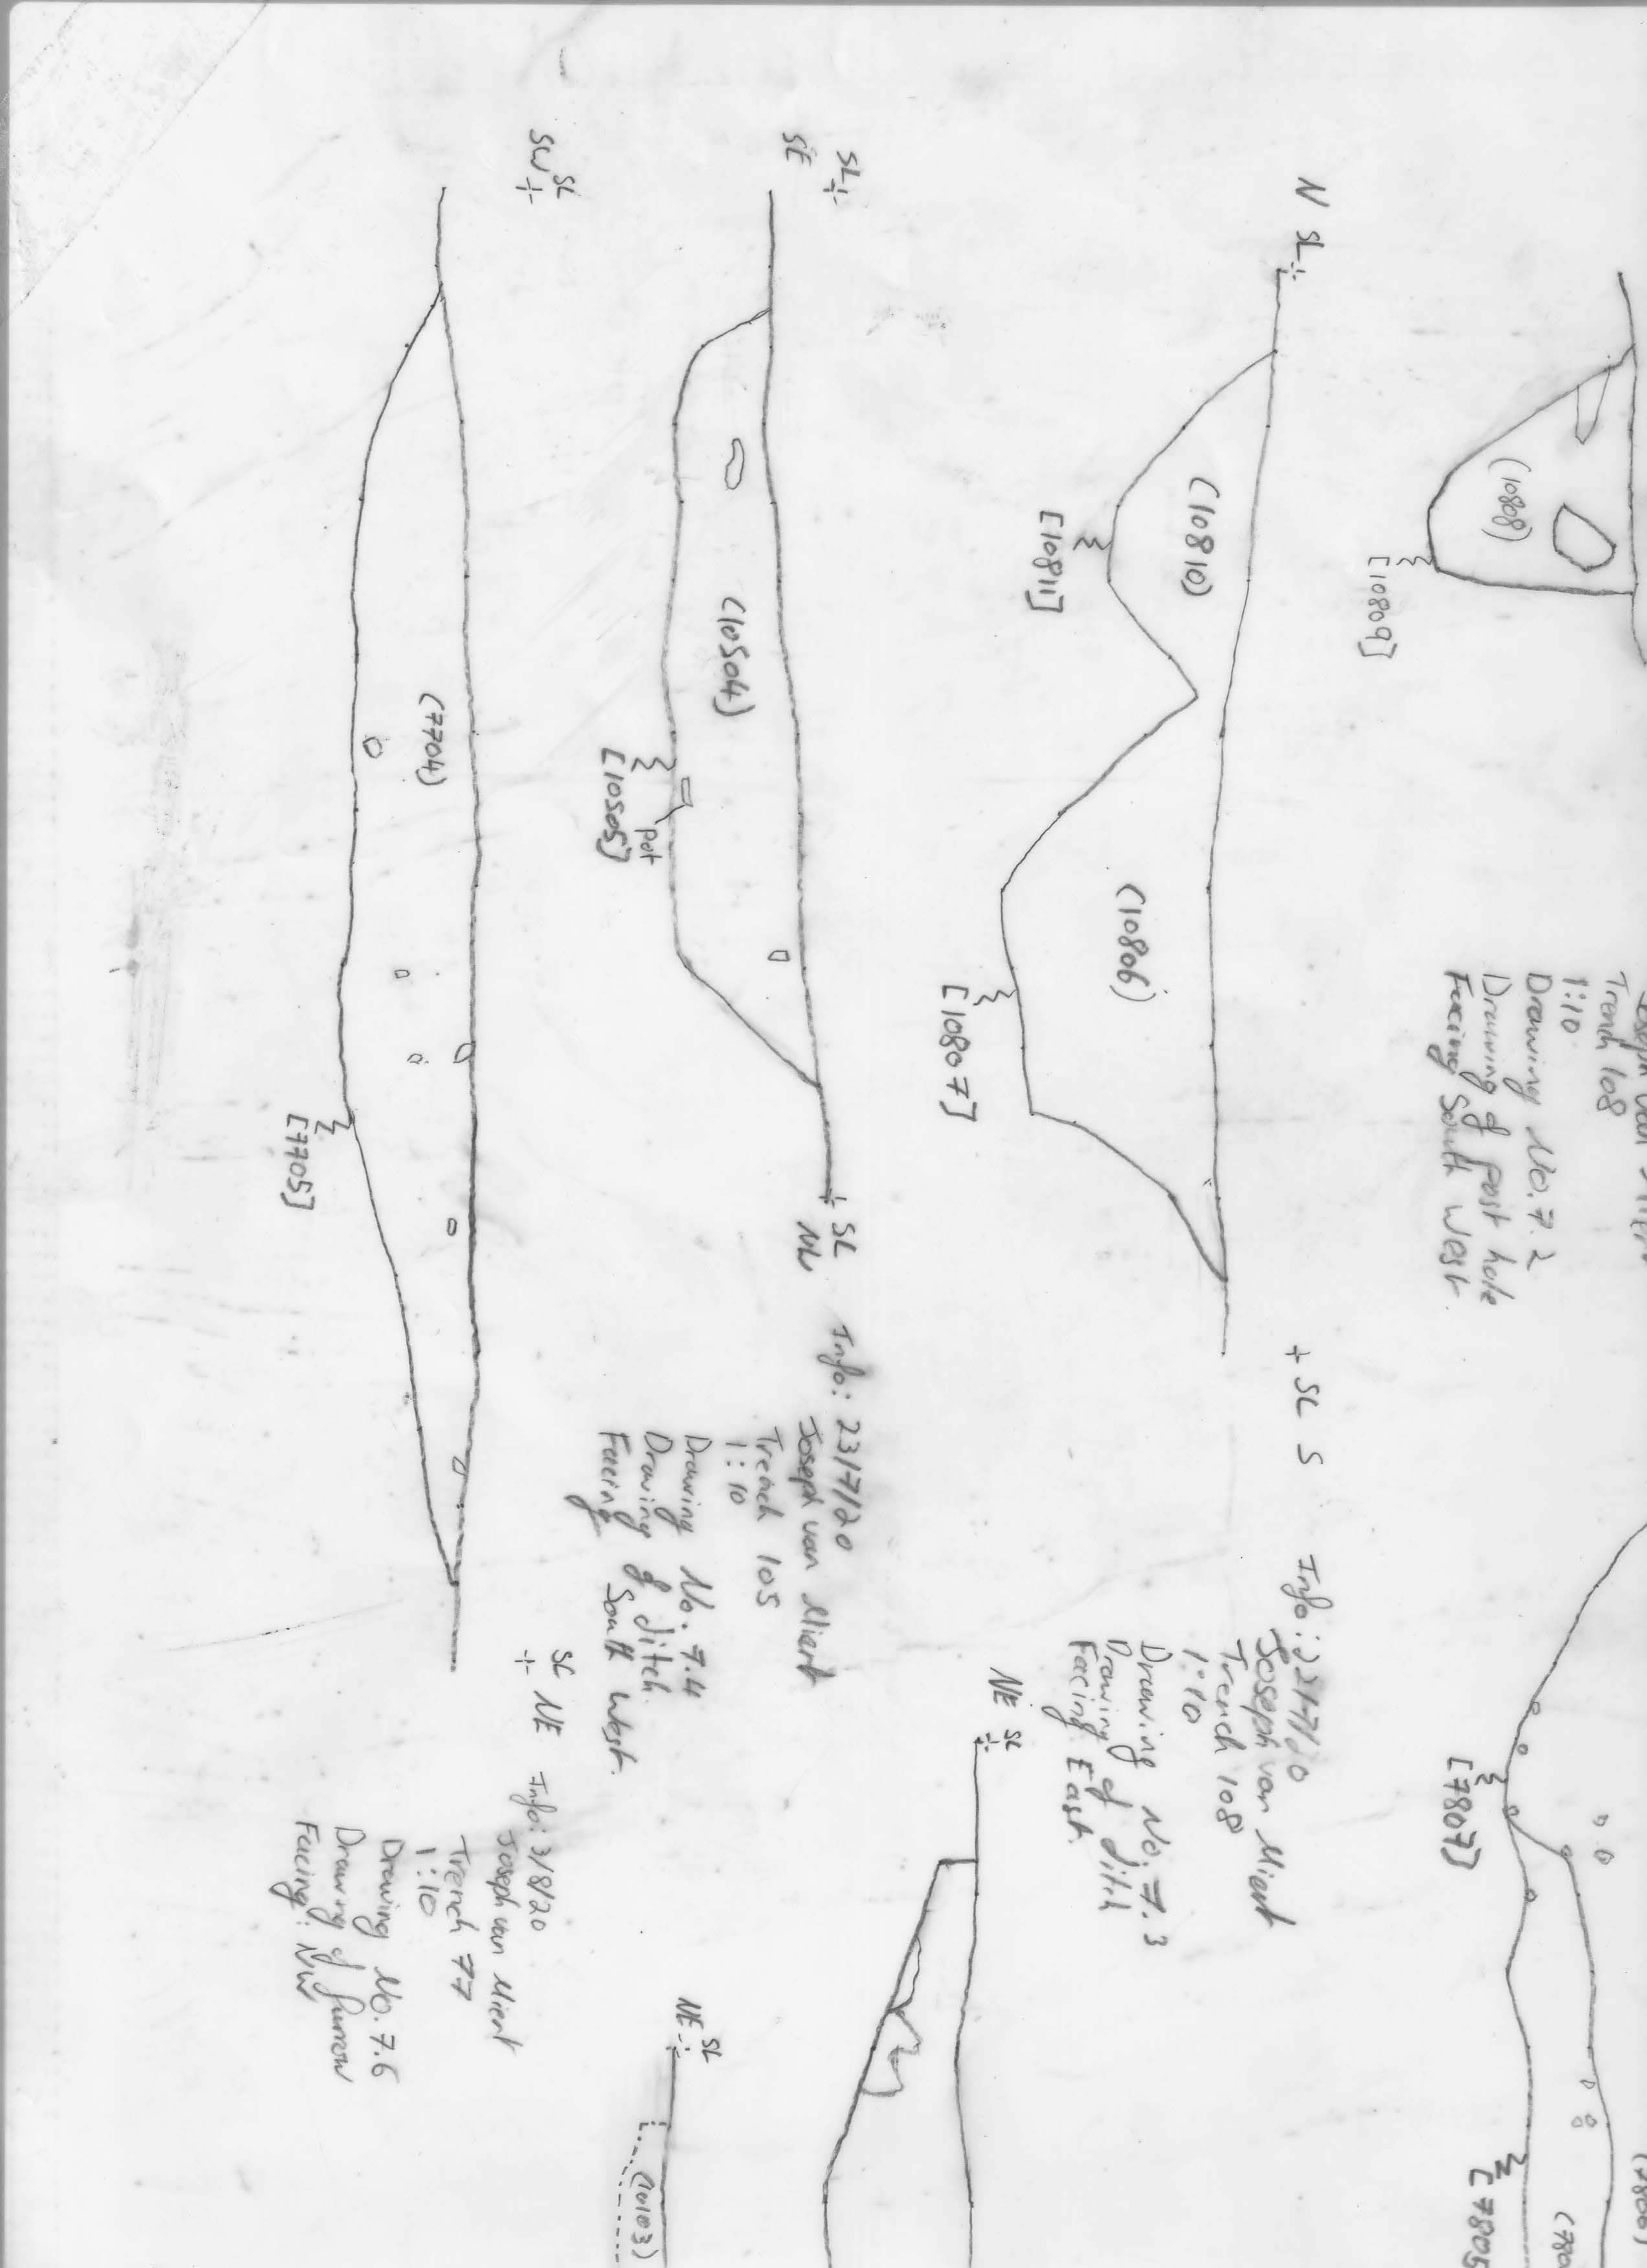 (10808)
[10809]
Trench 108
1:10
Drawing No. 7.2
Drawing of post hole
Facing South West.
N SL
(10810)
[10811]
(10806)
[10807]
SL S
Info: 22/7/20
Joseph van Mient
Trench 108
1:10
Drawing No. 7.3
Drawing of ditch
Facing East.
SL
SE
(10504)
[10505]
pot
SL
NW
Info: 23/7/20
Joseph van Mient
Trench 105
1:10
Drawing No. 7.4
Drawing of ditch.
Facing South West.
SL
SW
(7704)
[7705]
SL NE
Info: 3/8/20
Joseph van Mient
Trench 77
1:10
Drawing No. 7.6
Drawing of furrow
Facing: NW
[7807]
[7805
(780
(7806)
NE SL
NE SL
(10103)